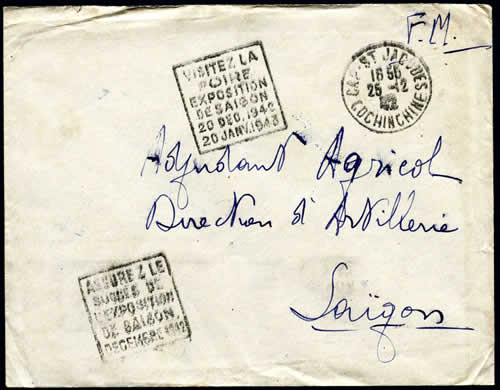 F.M.
VISITEZ LA
FOIRE
EXPOSITION
DE SAIGON
20 DEC. 1942
20 JANV. 1943
CAP-ST JACQUES
16 55
25 -12
42
COCHINCHINE
Adjudant Agricol
Direction d'Artillerie
Saïgon
ASSUREZ LE
SUCCES DE
L'EXPOSITION
DE SAIGON
DECEMBRE 1942